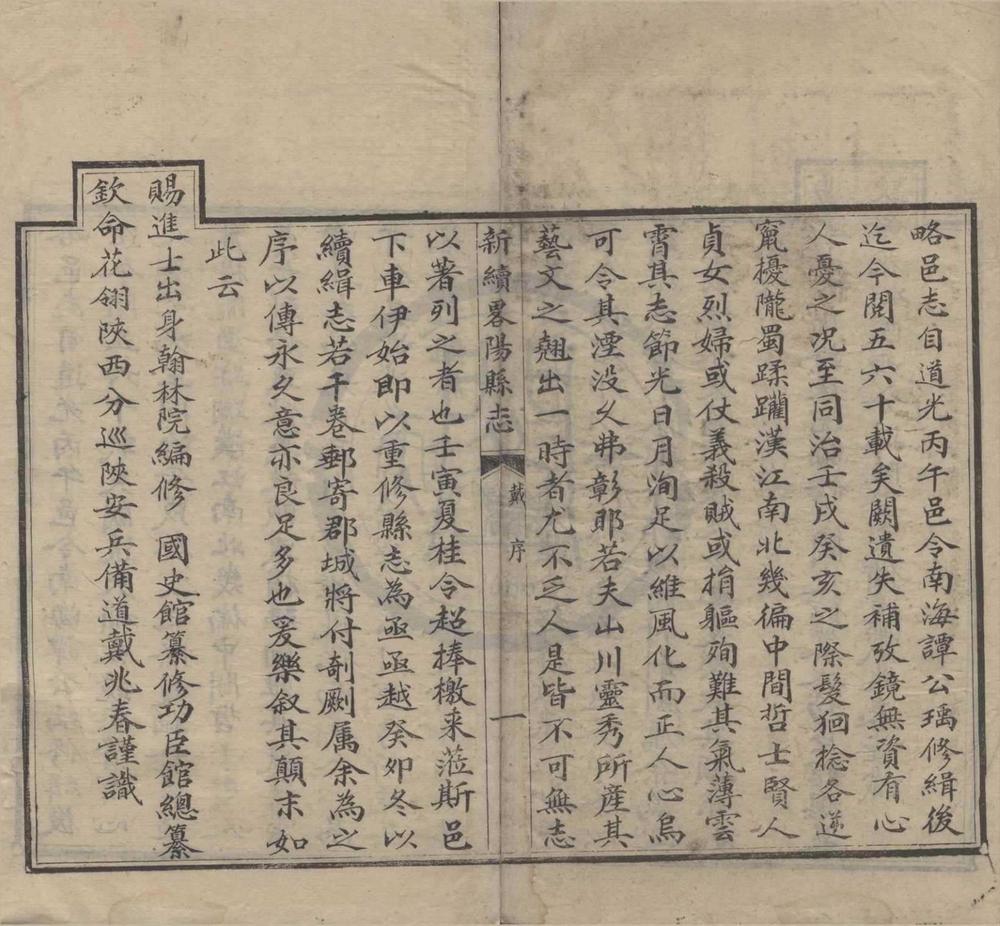 略邑志自道光丙午邑令南海譚公瑀修緝後
迄今閱五六十載矣闕遺失補攷鏡無資有心
人憂之況至同治壬戌癸亥之際髮狪捻各逆
竄擾隴蜀蹂躪漢江南北幾徧中間哲士賢人
貞女烈婦或仗義殺賊或捐軀殉難其氣薄雲
霄其志節光日月洵足以維風化而正人心烏
可令其湮没久弗彰耶若夫山川靈秀所產其
藝文之翹出一時者尤不乏人是皆不可無志
新續畧陽縣志 戴序 一
以著列之者也壬寅夏桂令超捧檄来蒞斯邑
下車伊始即以重修縣志為亟亟越癸夘冬以
續緝志若干卷郵寄郡城將付剞劂属余為之
序以傳永久意亦良足多也爰樂叙其顛末如
此云
賜進士出身翰林院編修 國史館纂修功臣館總纂
欽命花翎陝西分巡陝安兵備道戴兆春謹識